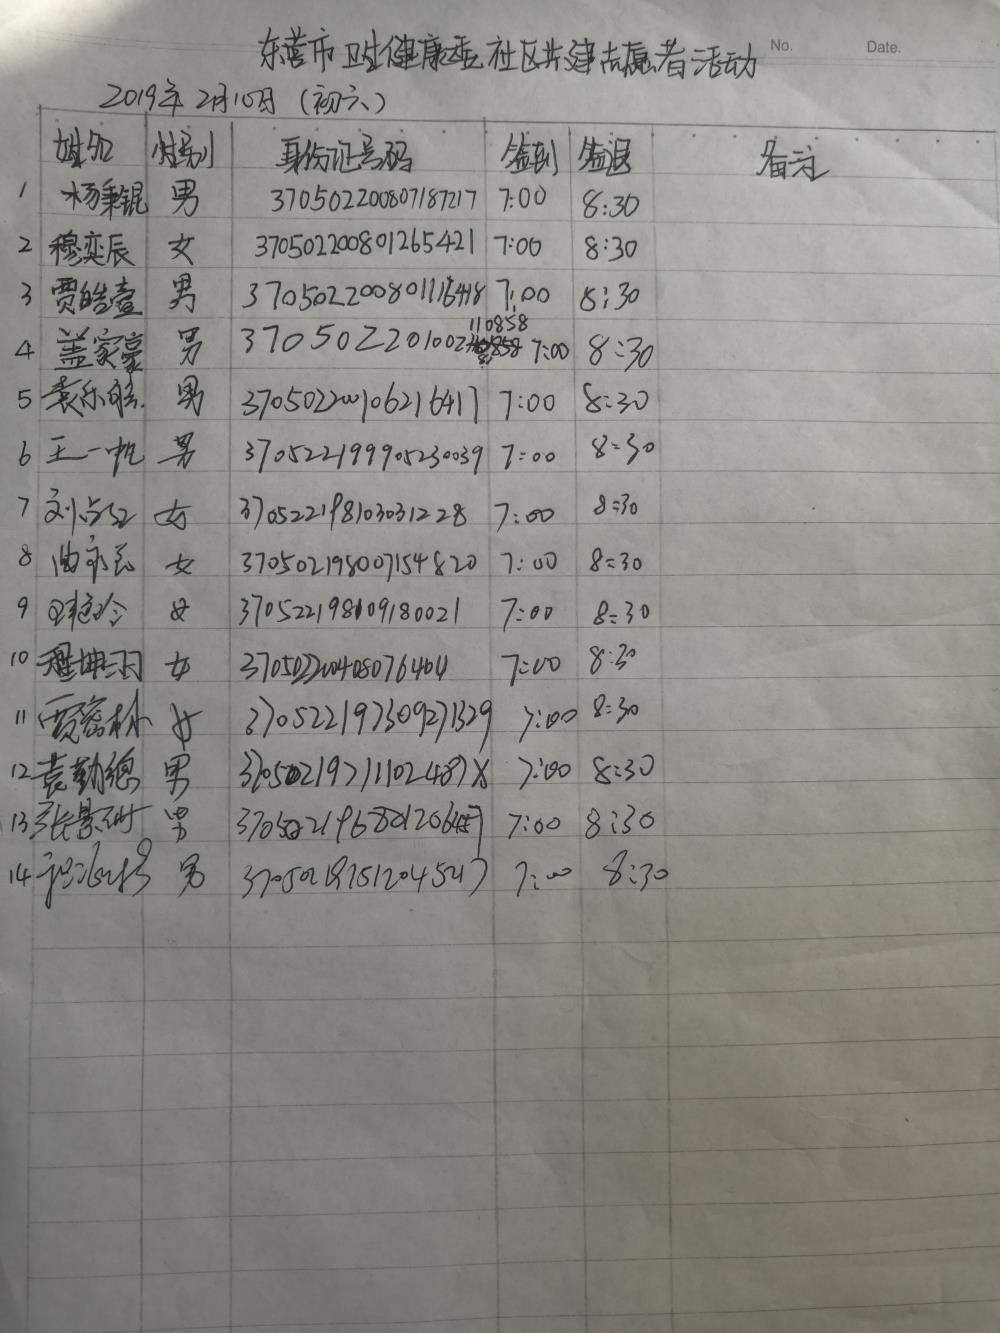 No. Date.
东营市卫生健康委社区共建志愿者活动
2019年2月10日（初六）
姓名 性别 身份证号码 签到 签退 备注
1 杨秉锟 男 370502200807187217 7:00 8:30
2 穆奕辰 女 370502200801265421 7:00 8:30
3 贾皓壹 男 370502200801116418 7:00 8:30
4 盖家豪 男 37050220100 110858 7:00 8:30
5 袁乐 男 370502200106216417 7:00 8:30
6 王一帆 男 370522199905230039 7:00 8:30
7 刘 女 370522198103031228 7:00 8:30
8 曲 女 370502198007154820 7:00 8:30
9 女 370522198109180021 7:00 8:30
10 程坤羽 女 370502200408076404 7:00 8:30
11 贾 林 女 370522197309271329 7:00 8:30
12 袁勤德 男 37050219711102487X 7:00 8:30
13 张景 男 7:00 8:30
14 男 7:00 8:30